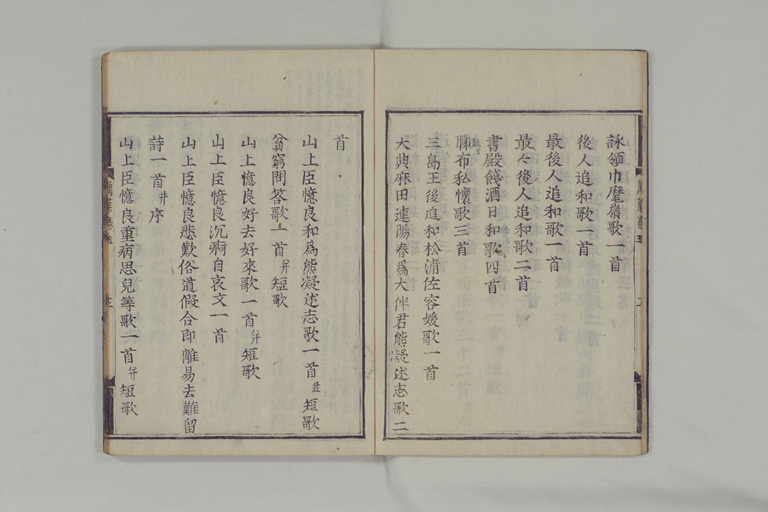 詠領巾麾嶺歌一首
後人追和歌一首
最後人追和歌一首
最々後人追和歌二首
書殿餞酒日和歌四首
聊布私懐歌三首
三島王後追和松浦佐容媛歌一首
大典麻田連陽春為大伴君熊凝述志歌二
首
山上臣憶良和為熊凝述志歌一首并短歌
貧窮問答歌一首并短歌
山上臣憶良好去好来歌一首并短歌
山上臣憶良沉痾自哀文一首
山上臣憶良悲歎俗道假合即離易去難留
詩一首并序
山上臣憶良重病思兒等歌一首并短歌